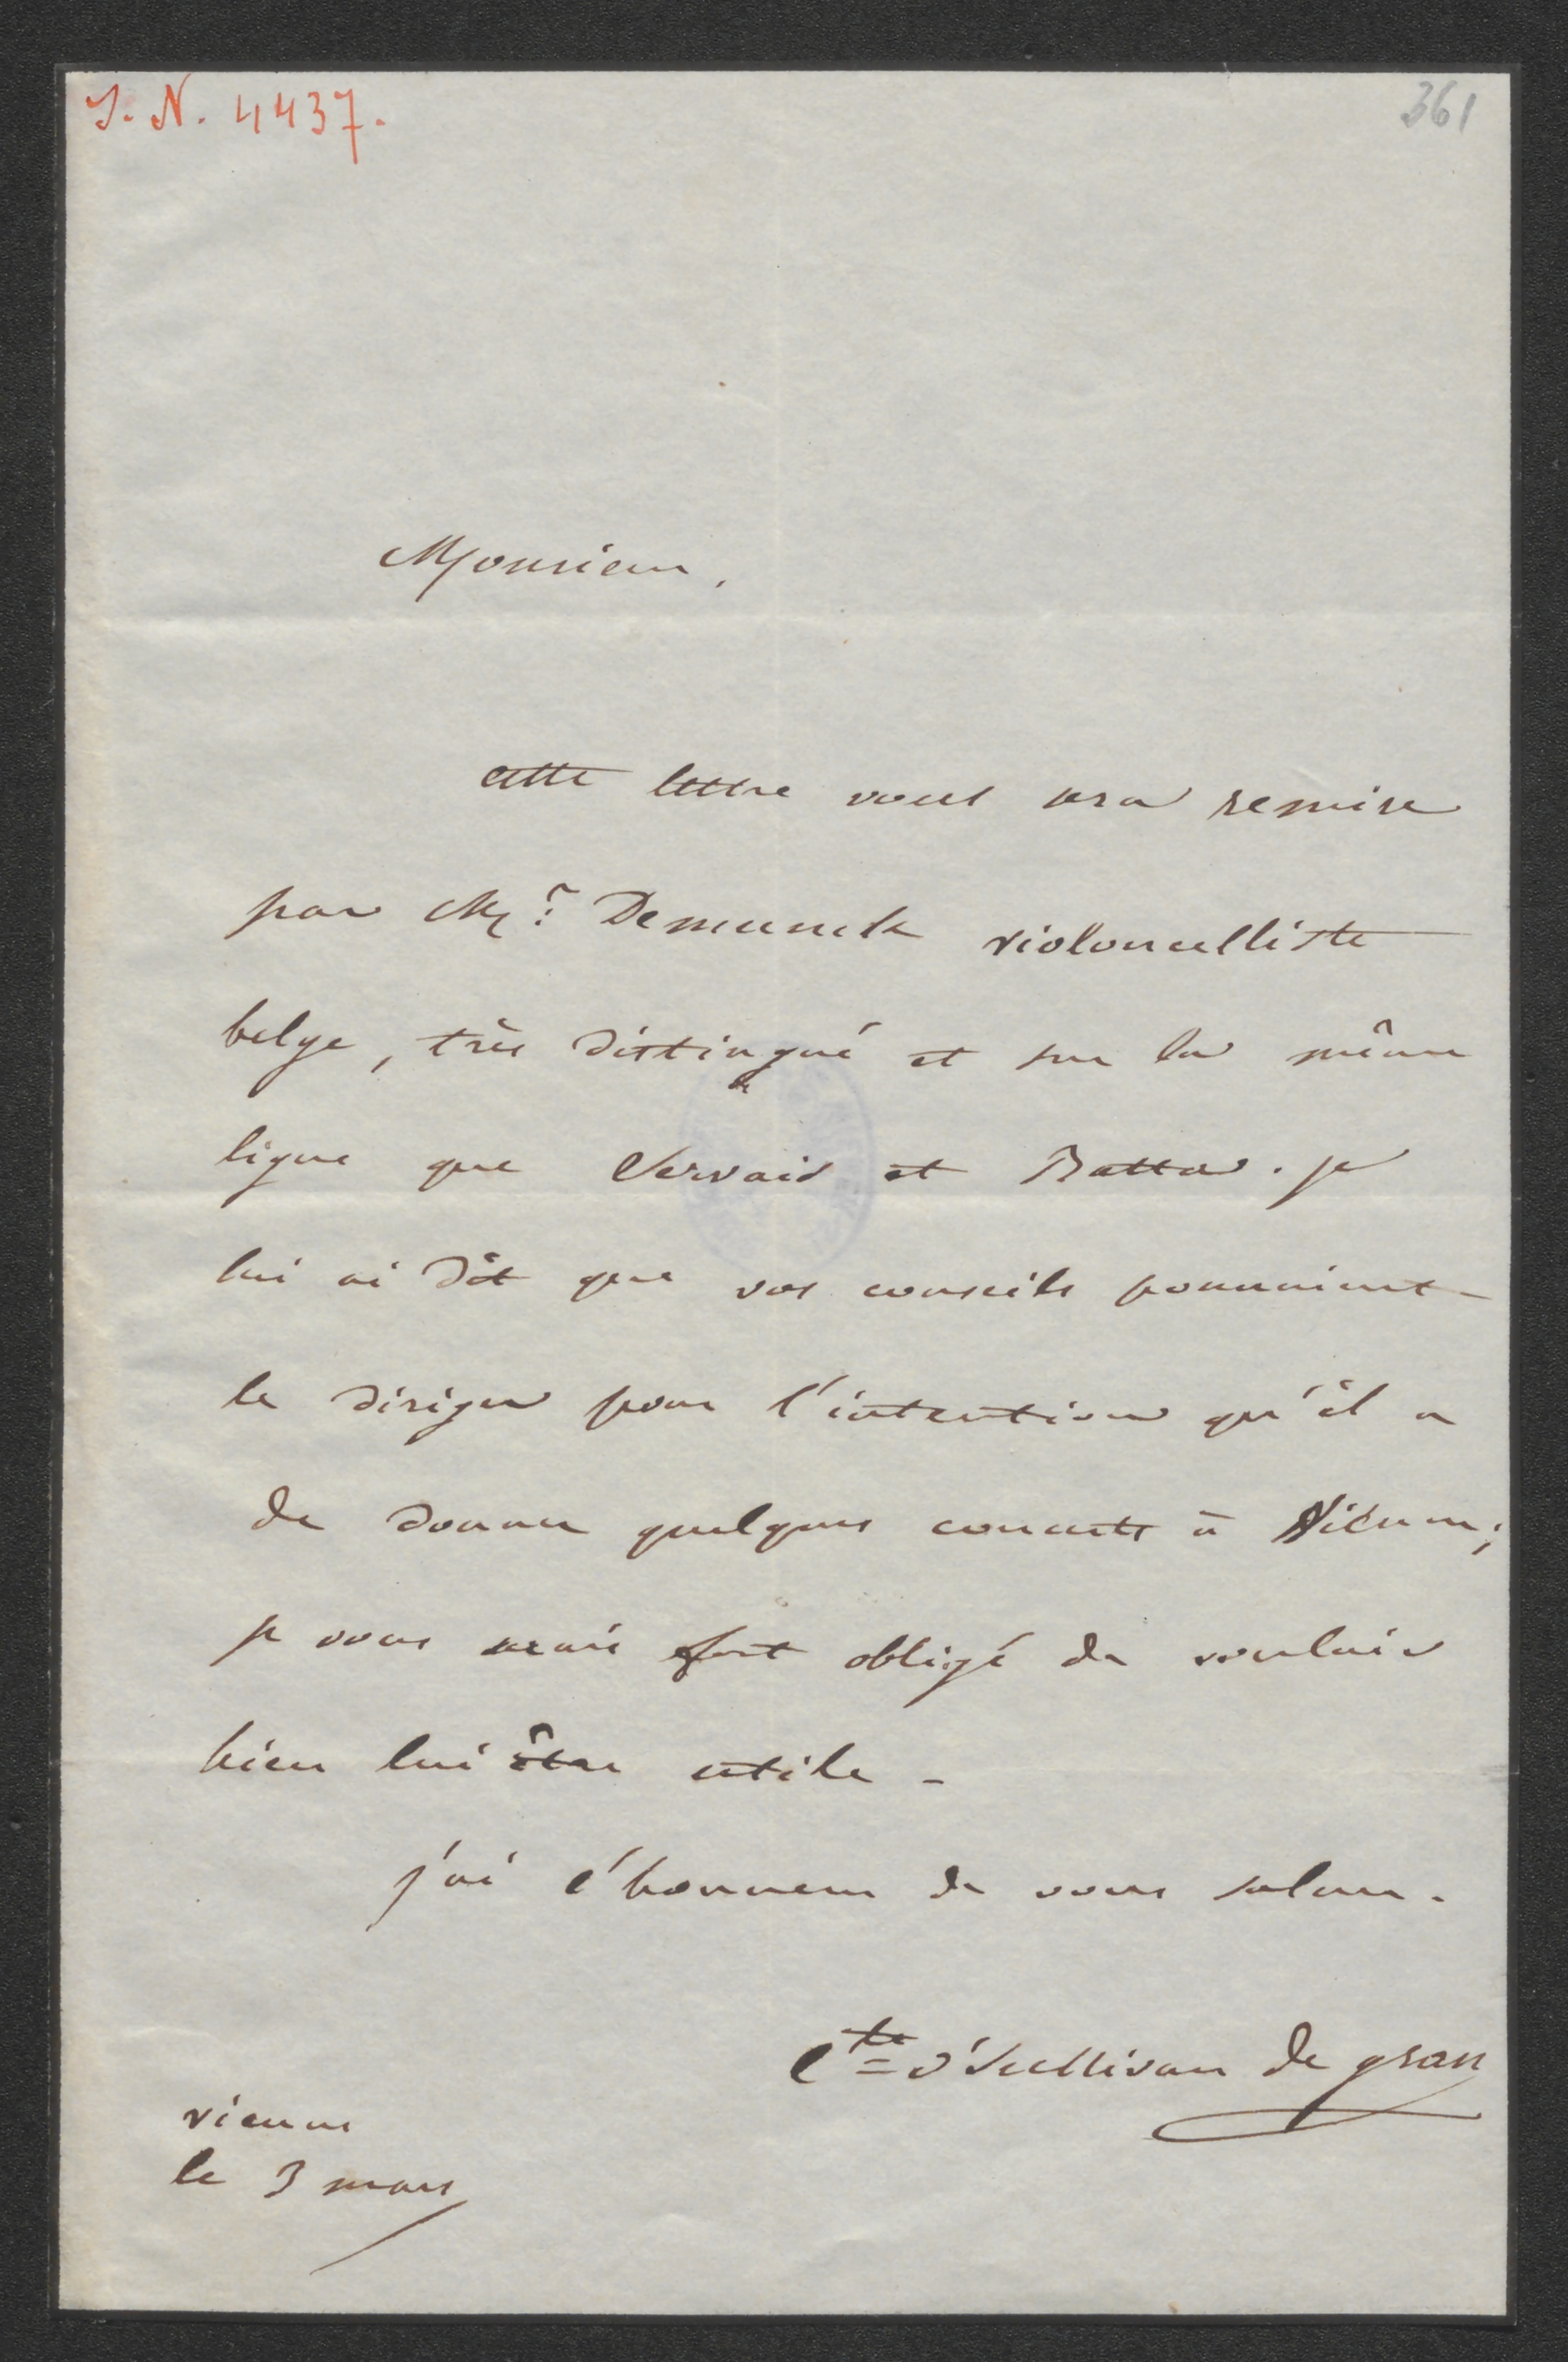 J. N. 4437.
361
Monsieur,
cette lettre vous sera remise
par Mr. Demunck violoncelliste
belge, très distingué et sur la même
ligne que Servais et Batta. je
lui ai dit que vos conseils pourraient
le diriger pour l'intention qu'il a
de donner quelques concerts à Vienne;
je vous serais fort obligé de vouloir
bien lui être utile -
j'ai l'honneur de vous saluer.
Cte O'Sullivan de grass
vienne
le 3 mars